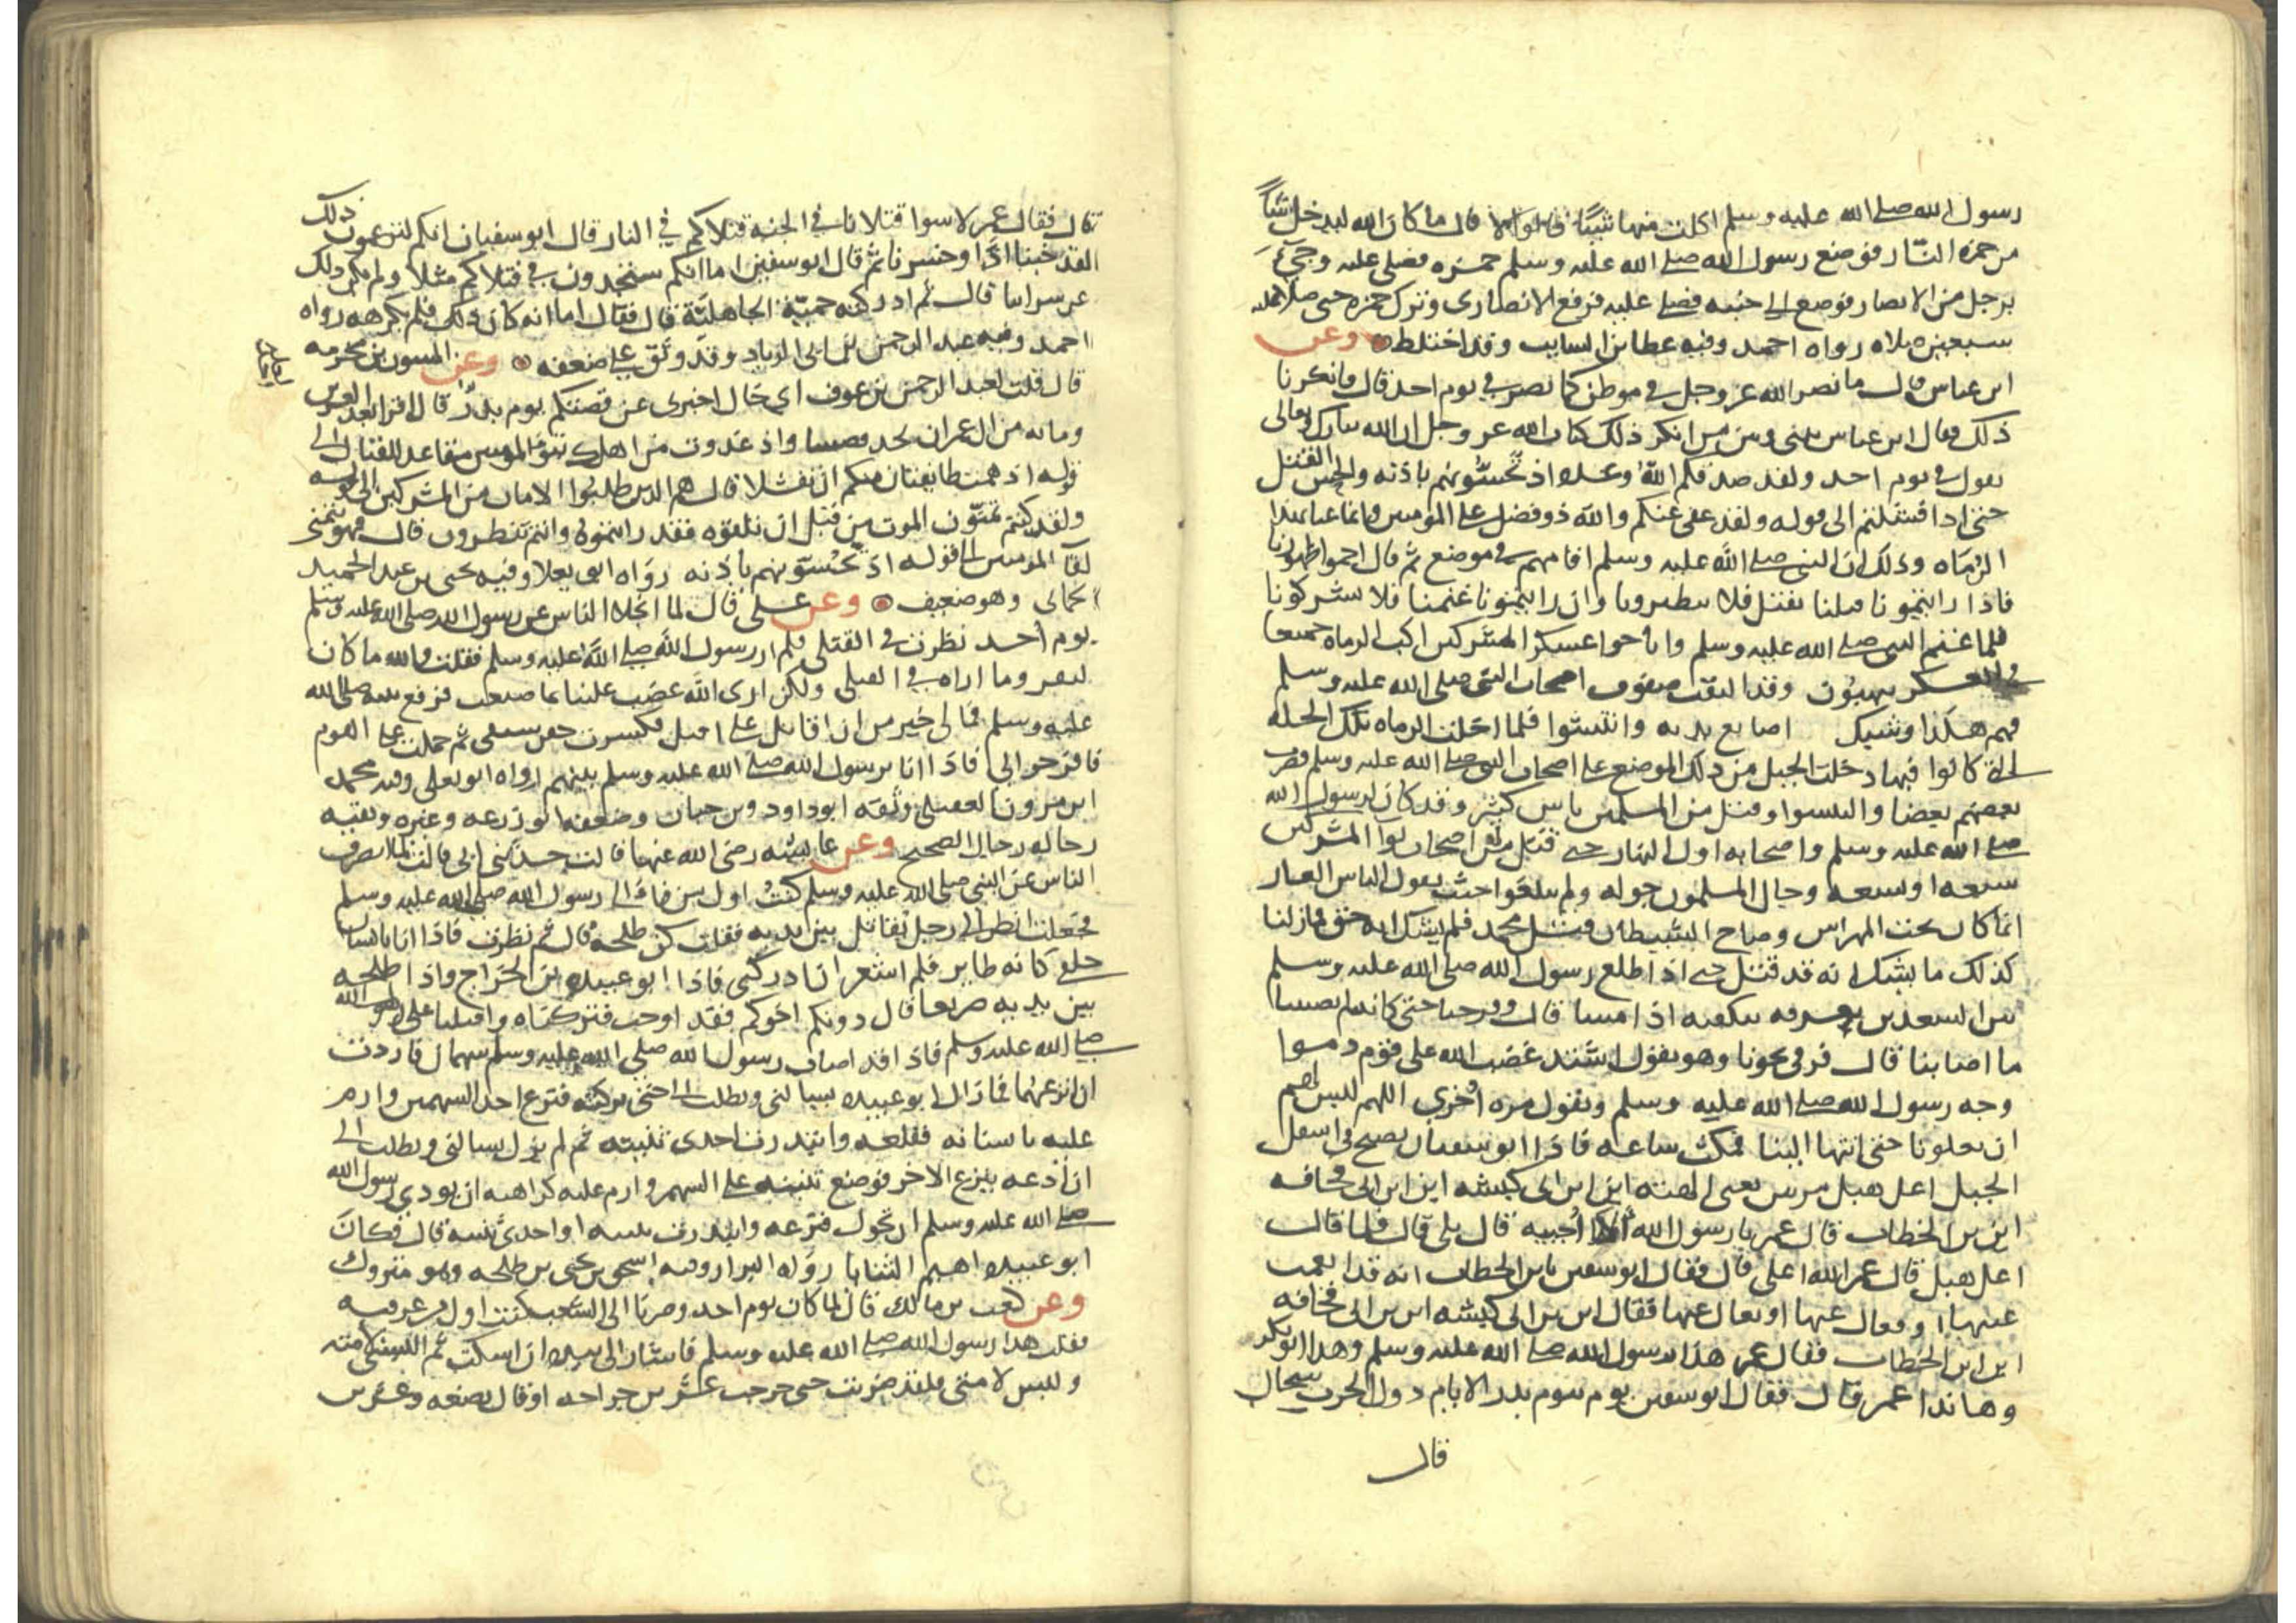 رسول الله صلى الله عليه وسلم اكلت منها شيئا قالوا لا قال ما كان الله ليدخل شيئا
من حمزة النار فوضع رسول الله صلى الله عليه وسلم حمزه فصلى عليه وجيء
برجل من الانصار فوضع الى جنبه فصلى عليه فرفع الانصارى وترك حمزه حتى صلا عليه
سبعين صلاه رواه احمد وفيه عطا بن السايب وقد اختلط وعن
ابن عباس قال ما نصر الله عز وجل في موطن كما نصر في يوم احد قال فانكرنا
ذلك فقال ابن عباس بينى وبين من انكر ذلك كتاب الله عز وجل ان الله تبارك وتعالى
يقول في يوم احد ولقد صدقكم الله وعده اذ تحسونهم باذنه والحس القتل
حتى اذا فشلتم الى قوله ولقد عفى عنكم والله ذو فضل على المومنين وانما عنا بهذا
الرماه وذلك ان النبى صلى الله عليه وسلم اقامهم في موضع ثم قال احموا ظهورنا
فاذا رايتمونا نقتل فلا تنصرونا وان رايتمونا غنمنا فلا تشركونا
فلما غنم النبى صلى الله عليه وسلم واباحوا عسكر المشركين اكب الرماه جميعا
في العسكر ينهبون وقد التقت صفوف اصحاب النبى صلى الله عليه وسلم
فهم هكذا وشبك اصابع يديه وانتشوا فلما اخلت الرماه تلك الخله
التى كانوا فيها دخلت الخيل من ذلك الموضع على اصحاب النبى صلى الله عليه وسلم فضرب
بعضهم بعضا والتبسوا وقتل من المسلمين ناس كثير وقد كان لرسول الله
صلى الله عليه وسلم واصحابه اول النهار حتى قتل من اصحاب لوا المشركين
سبعه او تسعه وجال المسلمون جوله ولم يبلغوا حيث يقول الناس الغار
انما كان تحت المهراس وصاح الشيطان قتل محمد فلم يشك انه حق فما زلنا
كذلك ما نشك انه قد قتل حتى اذ اطلع رسول الله صلى الله عليه وسلم
بين السعدين نعرفه بتكفيه اذا مشى قال وفرحنا حتى كانه لم يصبنا
ما اصابنا قال فرقى نحونا وهو يقول اشتد غضب الله على قوم دموا
وجه رسول الله صلى الله عليه وسلم ويقول مره اخرى اللهم ليس لهم
ان يعلونا حتى انتها الينا فمكث ساعه فاذا ابو سفيان يصيح في اسفل
الجبل اعل هبل مرتين يعنى الهته اين ابن ابى كبشه اين ابن ابى قحافه
اين بن الخطاب قال عمر يا رسول الله الا اجيبه قال بلى قال فلما قال
اعل هبل قال عمر الله اعلى قال فقال ابو سفين يابن الخطاب انه قد انعمت
عينها او فعال عنها او فعال عنها فقال اين بن ابى كبشه اين بن ابى قحافه
اين ابن الخطاب فقال عمر هذا رسول الله صلى الله عليه وسلم وهذا ابو بكر
وها نذا عمر قال فقال ابو سفين يوم بيوم بدر الايام دول الحرب سجال
قال
قال فقال عمر لا سوا قتلانا في الجنه قتلاكم في النار قال ابو سفيان انكم لتزعمون ذلك
لقد خبنا اذا وخسرنا ثم قال ابو سفين اما انكم ستجدون في قتلاكم مثلا ولم يكن ذلك
عن سراتنا قال ثم ادركته حمية الجاهلية قال فقال اما انه كان ذلك فلم نكرهه رواه
احمد وفيه عبد الرحمن بن ابى الزناد وقد وثق على ضعفه وعن المسور بن مخرمه
قال قلت لعبد الرحمن بن عوف اي خال اخبرنى عن قصتكم يوم بدر قال اقرا بعد العشرين
ومايه من ال عمران تجد قصتنا واذ غدوت من اهلك تبوئ المومنين مقاعد للقتال الى
قوله اذ همت طايفتان منكم ان تفشلا قال هم الذين طلبوا الامان من المشركين الى قوله
ولقد كنتم تمنون الموت من قبل ان تلقوه فقد رايتموه وانتم تنظرون قال فهو تمنى
لقا المومنين الى قوله اذ تحسونهم باذنه رواه ابو يعلا وفيه يحيى بن عبد الحميد
الحمانى وهو ضعيف وعن على قال لما انجلا الناس عن رسول الله صلى الله عليه وسلم
يوم احد نظرت في القتلى فلم ار رسول الله صلى الله عليه وسلم فقلت والله ما كان
ليفر وما اراه في القتلى ولكن ارى الله غضب علينا بما صنعنا فرفع نبيه صلى الله
عليه وسلم فما لى خير من ان اقاتل حتى اقتل فكسرت جفن سيفى ثم حملت على القوم
فافرجوا لى فاذا انا برسول الله صلى الله عليه وسلم بينهم رواه ابو يعلى وفيه محمد
ابن مروان العقيلى وثقه ابو داود وبن حبان وضعفه ابو زرعه وغيره وبقيه
رجاله رجال الصحيح وعن عايشه رضى الله عنها قالت حدثنى ابى قال لما انصرف
الناس عن النبى صلى الله عليه وسلم كنت اول من فا الى رسول الله صلى الله عليه وسلم
فجعلت انظر الى رجل يقاتل بين يديه فقلت كن طلحه قال ثم نظرت فاذا انا بانسان
خلفى كانه طاير فلم اشعر ان ادركنى فاذا ابو عبيده بن الجراح واذا طلحه
بين يديه صريعا قال دونكم اخوكم فقد اوجب فتركناه واقبلنا على رسول الله
صلى الله عليه وسلم فاذا قد اصاب رسول الله صلى الله عليه وسلم سهمان فاردت
ان انزعهما فما زال ابو عبيده يسالنى ويطلب الى حتى تركته فنزع احد السهمين وازم
عليه باسنانه فقلعه وابتدرت احدى ثنيتيه ثم لم يزل يسالنى ويطلب الى
ان ادعه ينزع الاخر فوضع ثنيته على السهم وازم عليه كراهيه ان يوذي رسول الله
صلى الله عليه وسلم ان تحول فنزعه وابتدرت ثنيته او احدى ثنيتيه قال فكان
ابو عبيده اهتم الثنايا رواه البزار وفيه اسحق بن يحيى بن طلحه وهو متروك
وعن كعب بن مالك قال لما كان يوم احد وصرنا الى الشعب كنت اول من عرفه
فقلت هذا رسول الله صلى الله عليه وسلم فاشار الى بيده ان اسكت ثم البسنى لامته
ولبس لامتى فلقد ضربت حتى جرحت عشرين جراحه او قال بضعه وعشرين